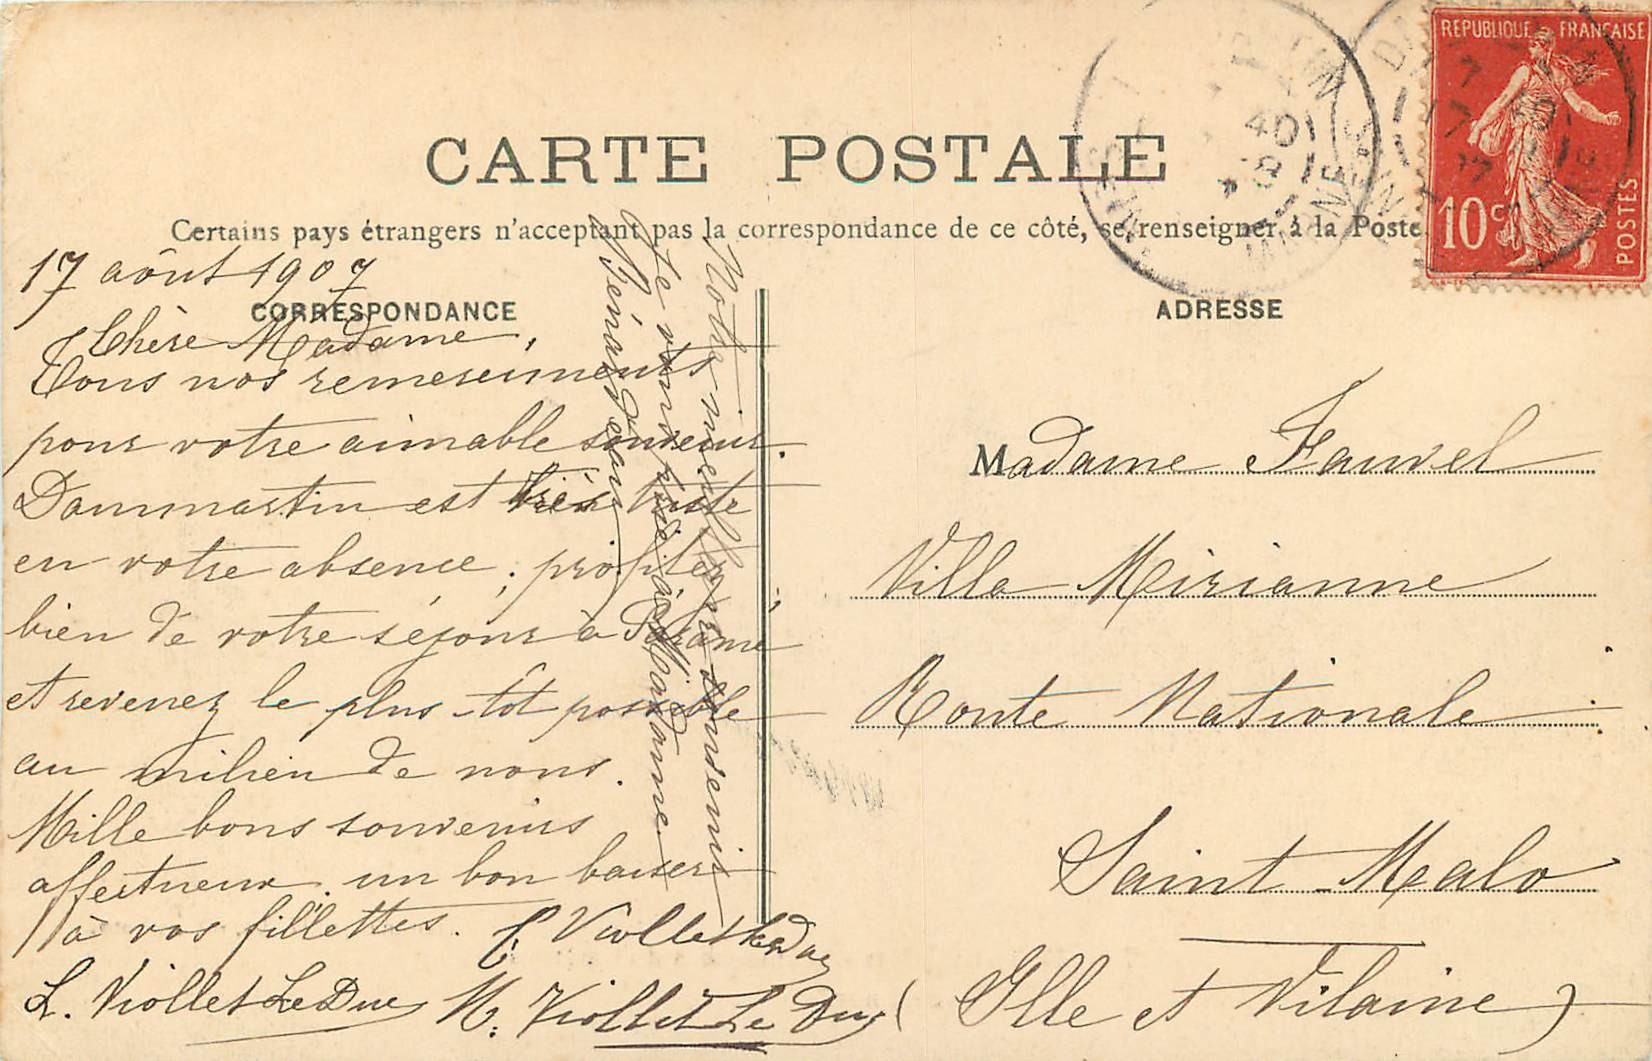 CARTE POSTALE
Certains pays étrangers n'acceptant pas la correspondance de ce côté, se renseigner à la Poste
REPUBLIQUE FRANÇAISE
10c
POSTES
CORRESPONDANCE
ADRESSE
17 août 1907
Chère Madame,
Tous nos remerciments
pour votre aimable souvenir.
Dammartin est très triste
en votre absence, profitez
bien de votre séjour à Paramé
et revenez le plus tôt possible
au milieu de nous.
Mille bons souvenirs
affectueux, un bon baiser
à vos fillettes. C. Viollet Le Duc
L. Viollet Le Duc M. Viollet Le Duc
Notre meilleur souvenir
à Madame
Madame Fauvel
Villa Mirianne
Route Nationale
Saint-Malo
(Ille et Vilaine)